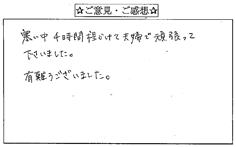 ☆ご意見・ご感想☆
寒い中 4時間程かけて夫婦で頑張って
下さいました。
有難うございました。